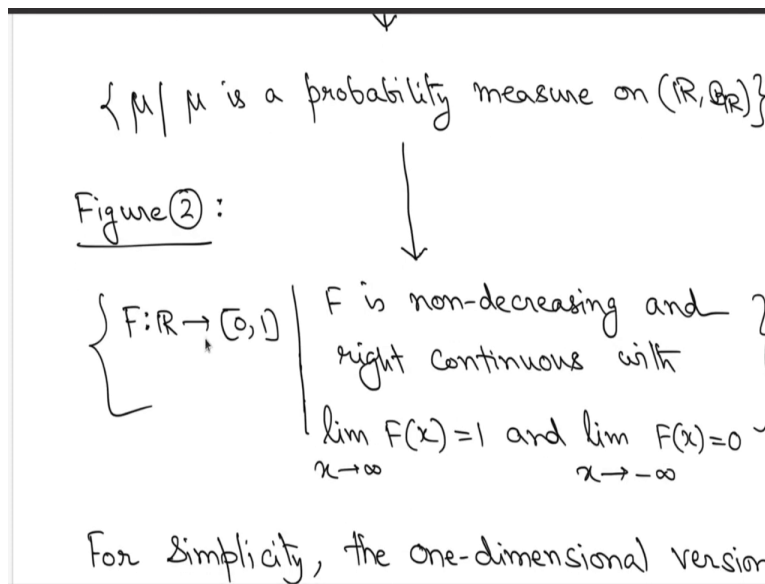 { μ | μ is a probability measure on (ℝ, 𝔅_ℝ)}
Figure ② :
{ F: ℝ → [0,1] | F is non-decreasing and }
right continuous with
lim F(x) = 1 and lim F(x) = 0
x→∞ x→ -∞
For simplicity, the one-dimensional version